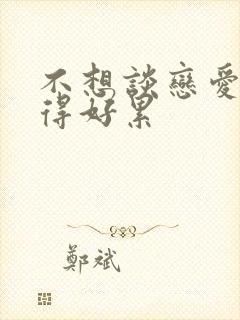 不想談戀愛
得好累
鄭斌